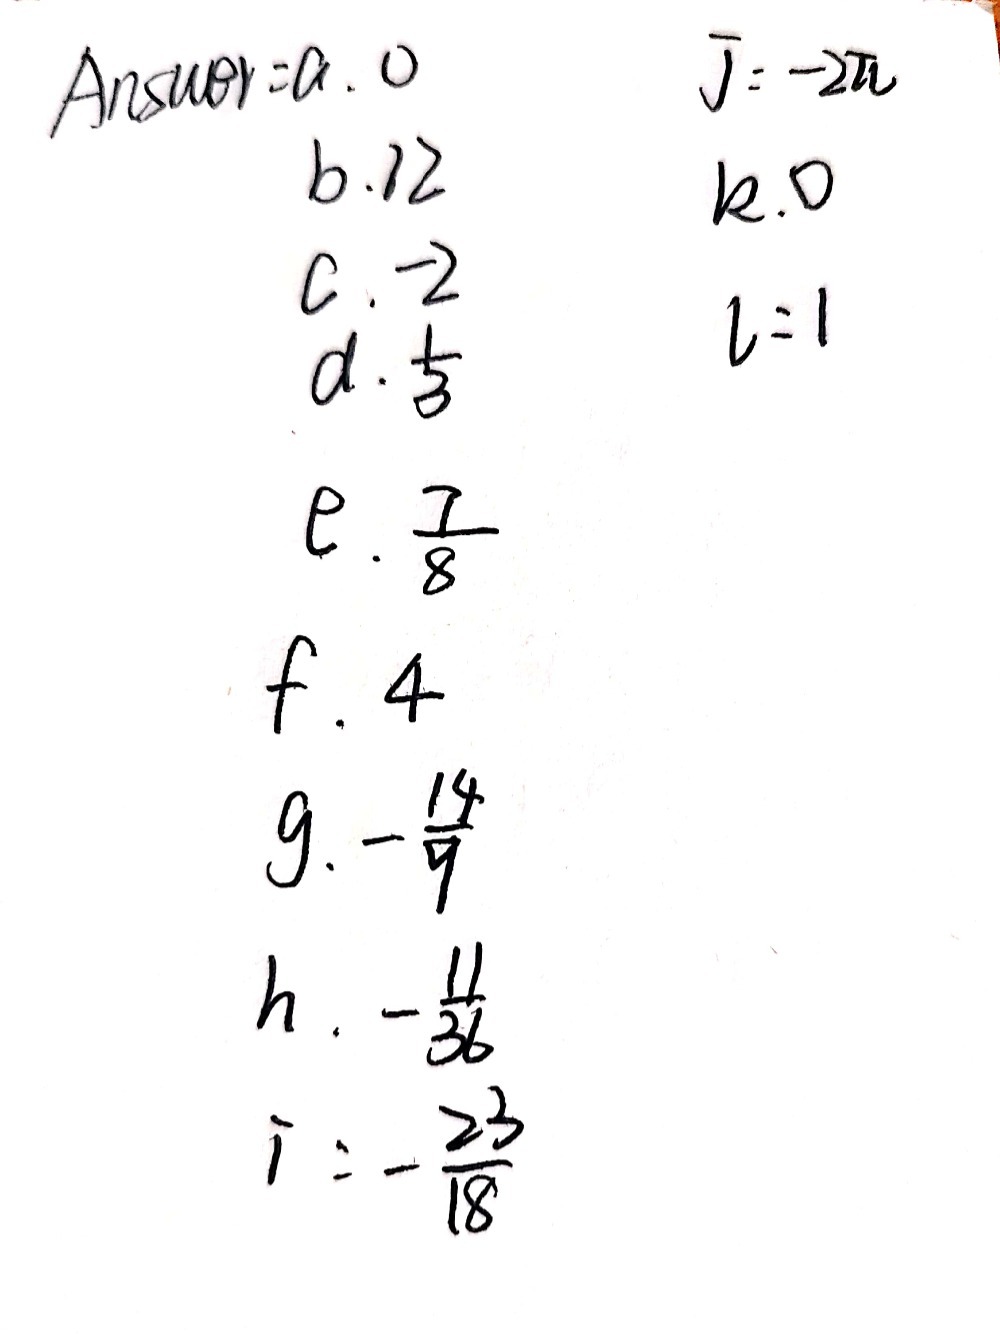 Answer = a. 0
b. 12
c. -2
d. 1/3
e. 7/8
f. 4
g. - 14/9
h. - 11/36
i = - 23/18
j = -2πi
k. 0
l = 1